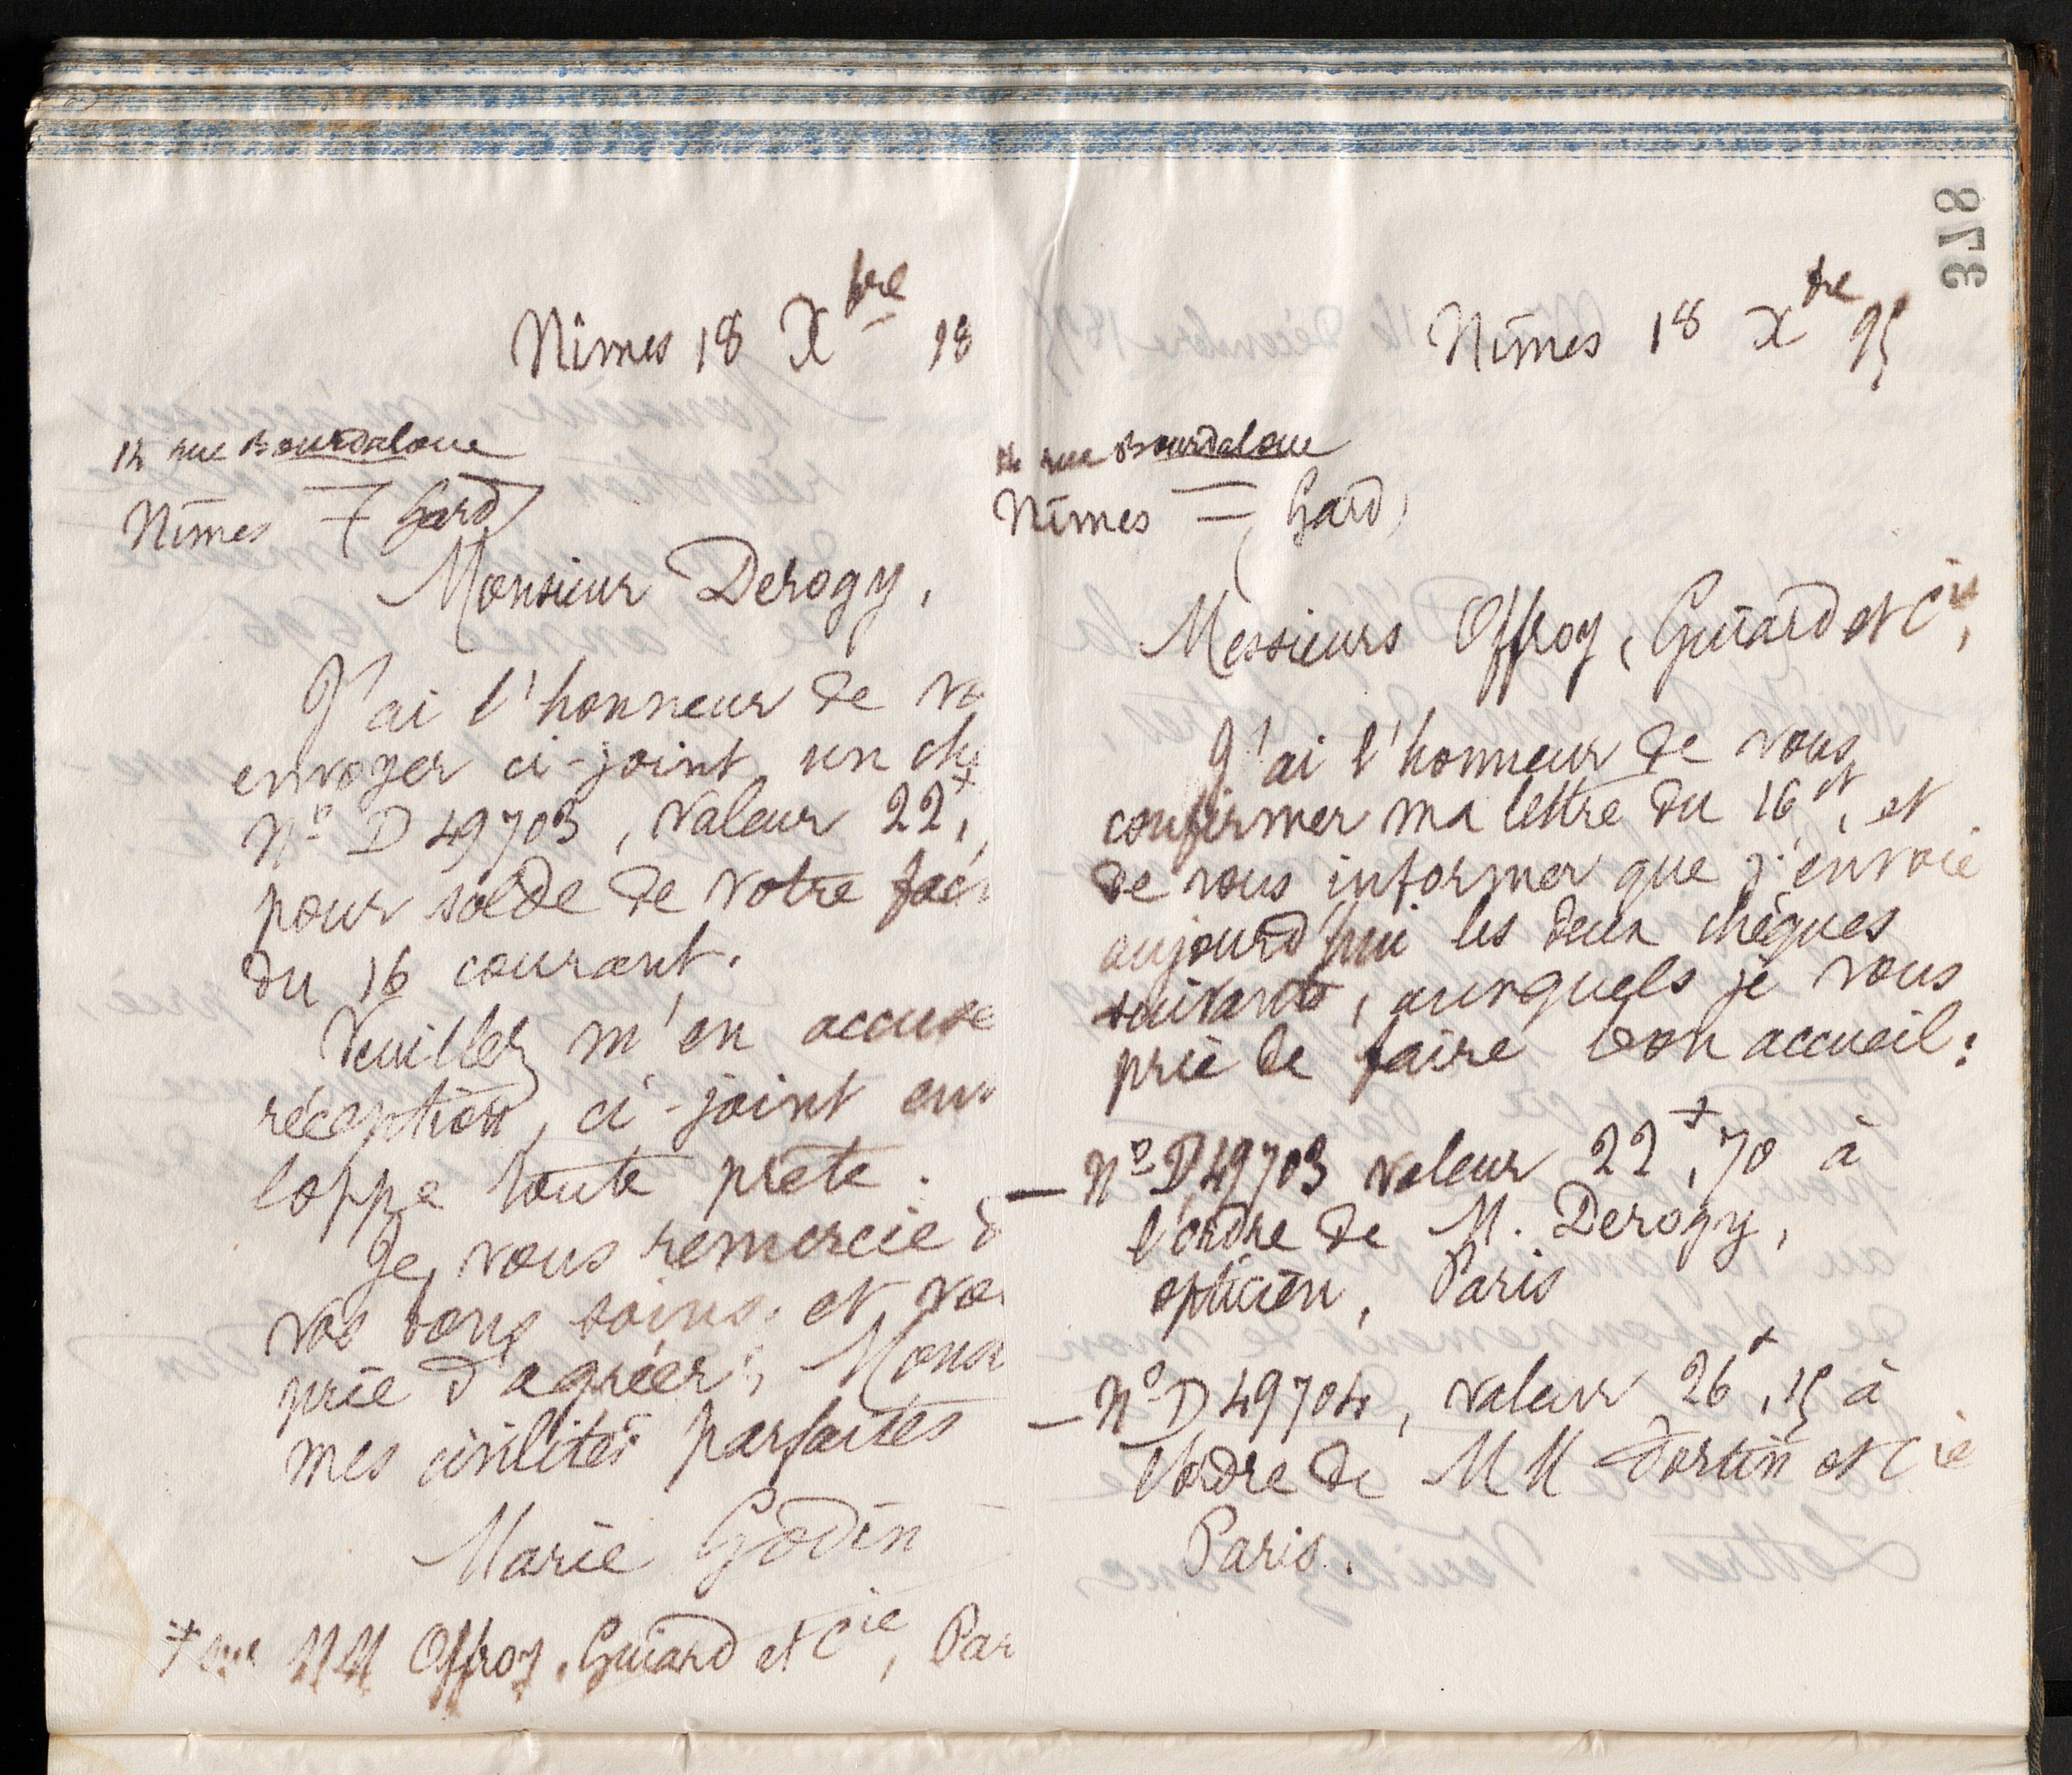 Nîmes 18 Xbre 18
14 rue Bourdaloue
Nîmes = (Gard)
Monsieur Derogy,
J'ai l'honneur de vo
envoyer ci-joint un chè
No D 49703, valeur 22f,
pour solde de votre fact
du 16 courant.
Veuillez m'en accuse
réception, ci-joint enve
loppe toute prête.
Je vous remercie d
vos bons soins, et vou
prie d'agréer, Monsi
mes civilités parfaites
Marie Godin
+ sur MM Offroy, Guiard et Cie, Par
378
Nîmes 18 Xbre 95
14 rue Bourdaloue
Nîmes = (Gard)
Messieurs Offroy, Guiard et Cie,
J'ai l'honneur de vous
confirmer ma lettre du 16 ct, et
de vous informer que j'envoie
aujourd'hui les deux chèques
suivants, auxquels je vous
prie de faire bon accueil:
— No D 49703 valeur 22f,70 à
l'ordre de M. Derogy,
opticien, Paris
— No D 49704, valeur 26f,15 à
l'ordre de MM Fortin et Cie
Paris.